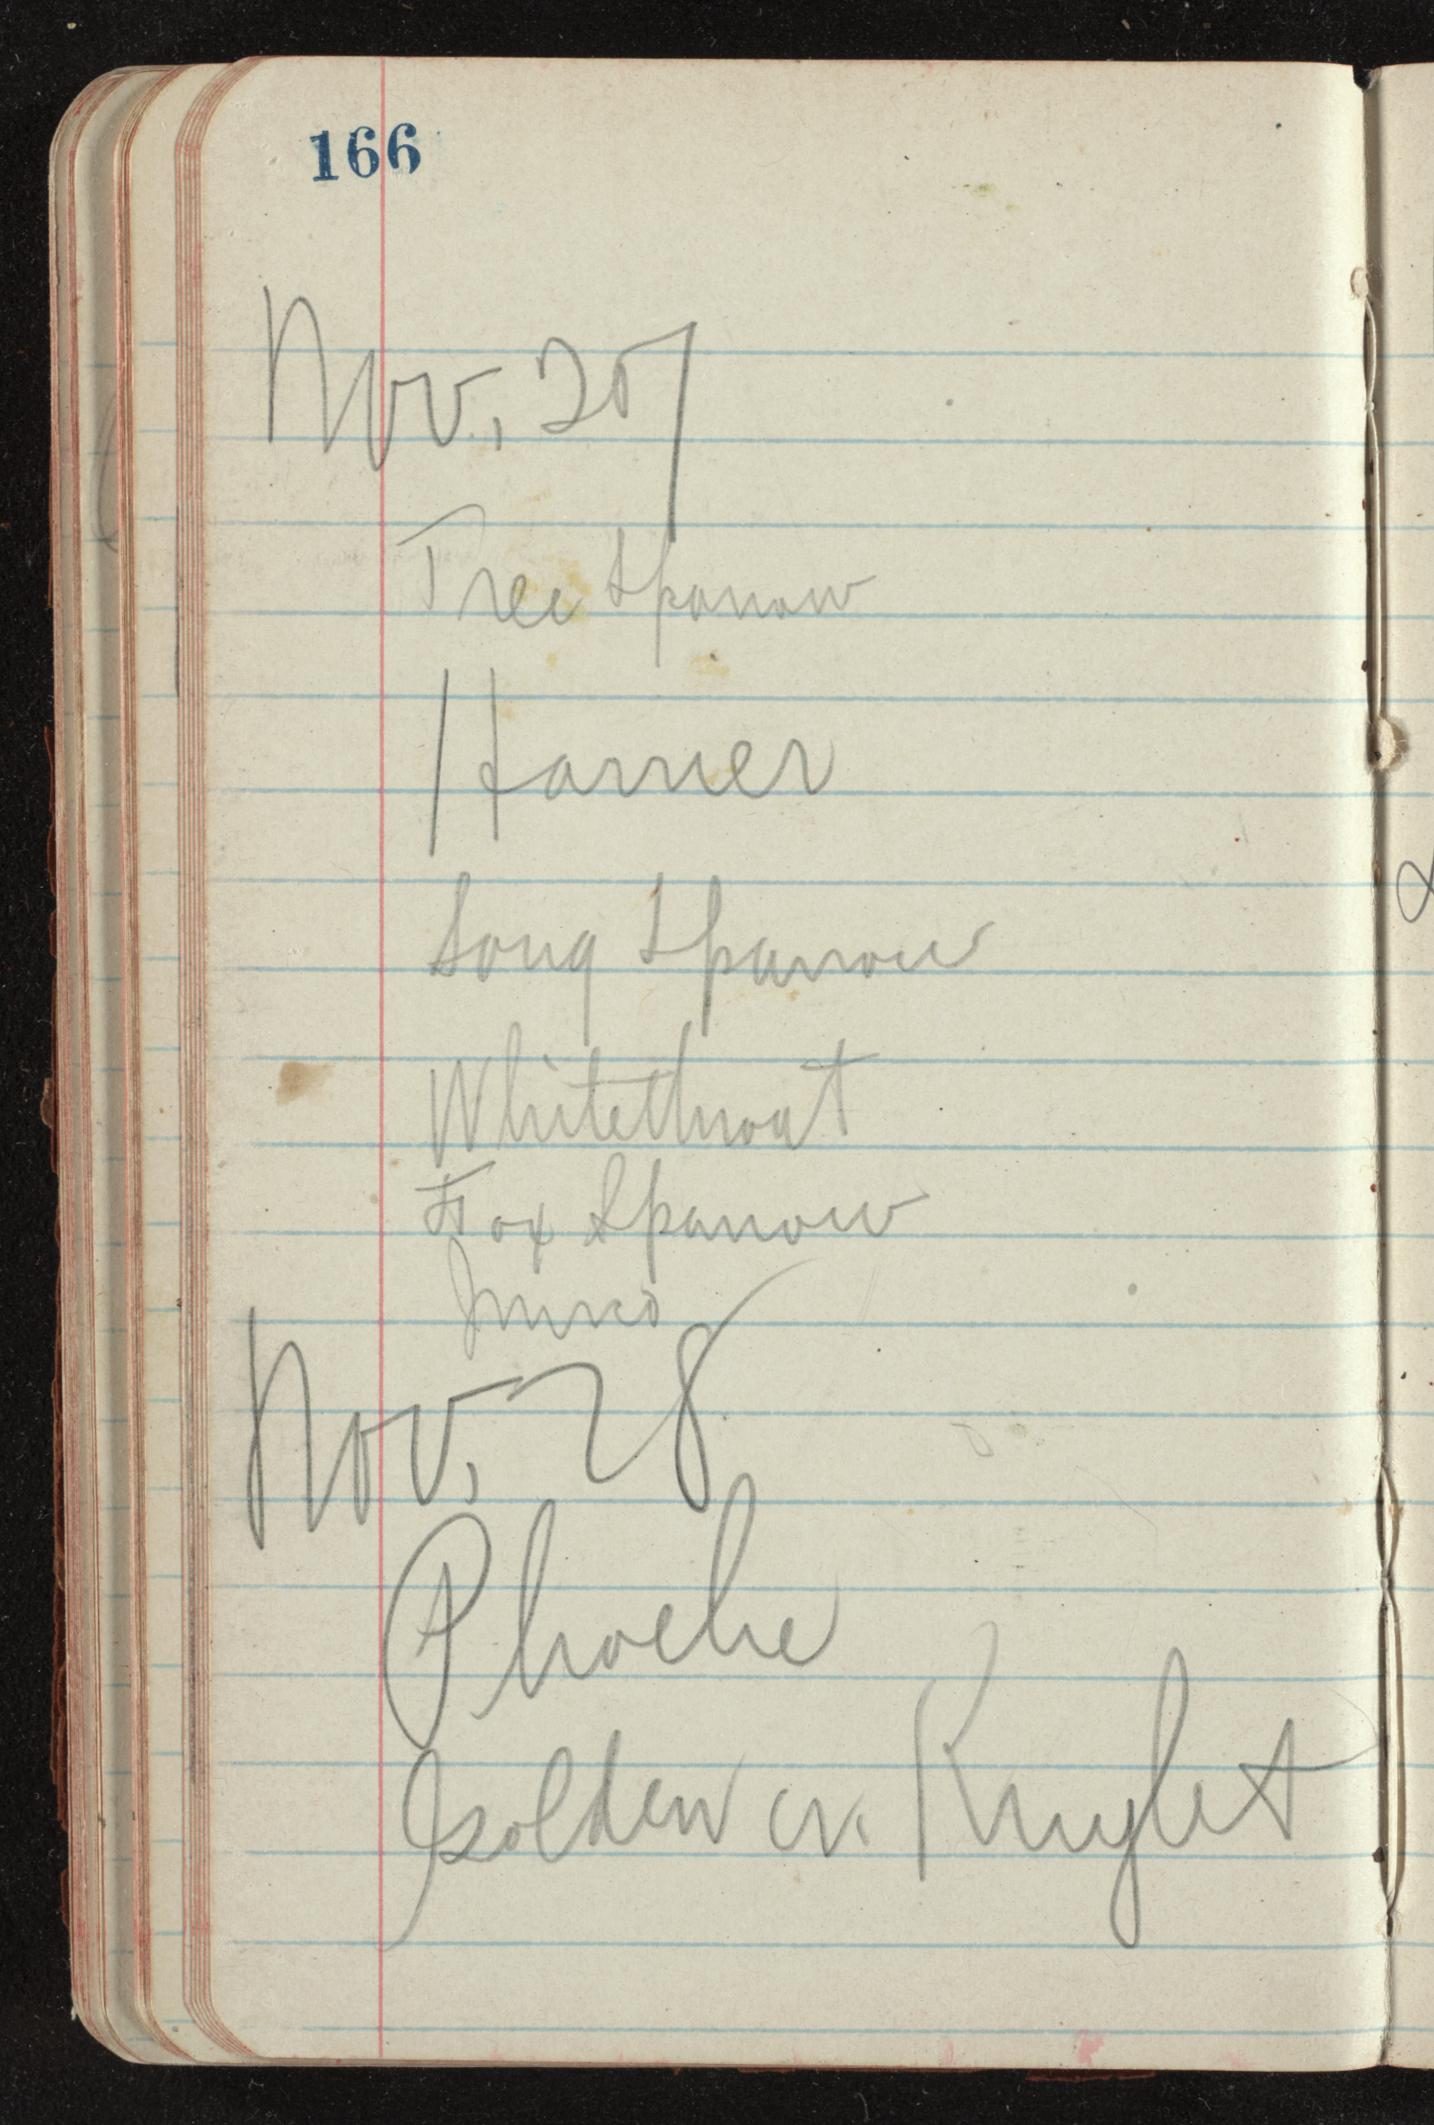 166
Nov. 27
Tree Sparrow
Harrier
Song Sparrow
Whitethroat
Fox Sparrow
Junco
Nov. 28
Phoebe
Golden cr. Knglet